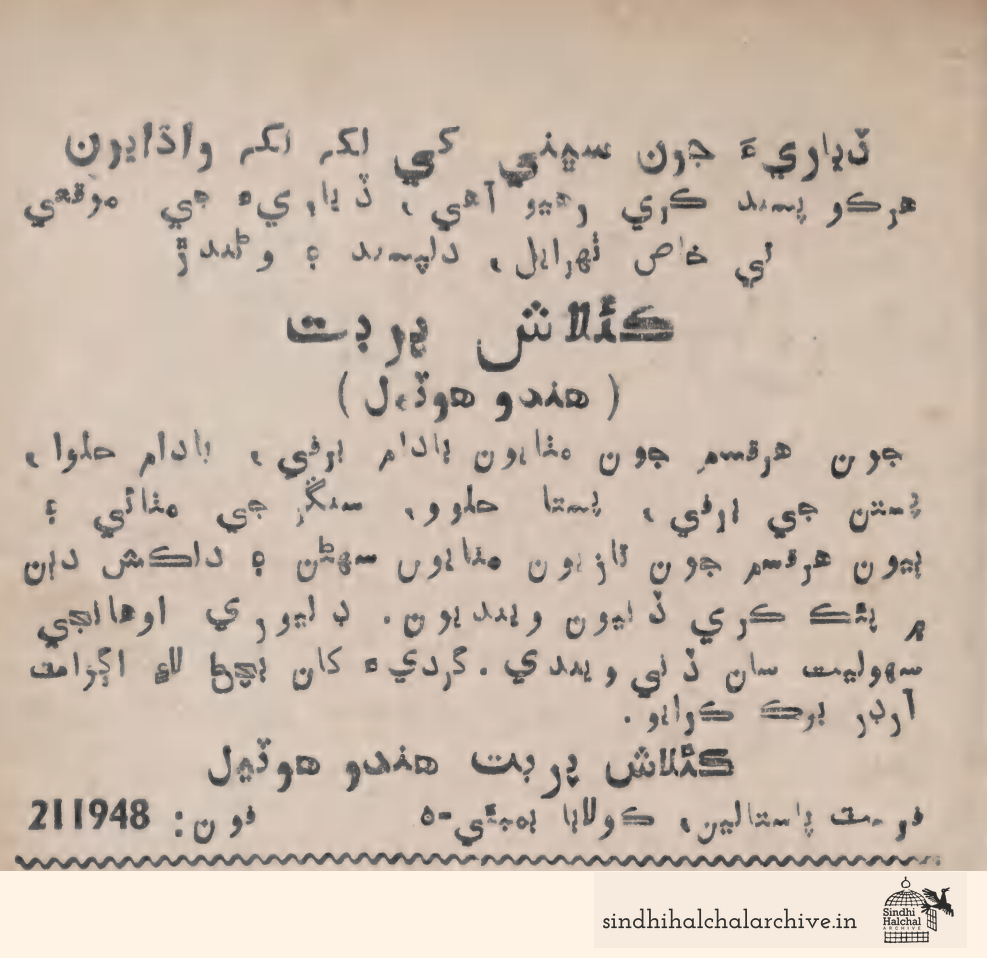 ڏياريءَ جون سڀني کي لک لک واڌايون
هرڪو پسند ڪري رهيو آهي، ڏياريءَ جي موقعي
تي خاص ٺهرايل، دلپسند ۽ وڻندڙ
ڪئلاش پربت
( هندو هوٽيل )
جون هرقسم جون مٺايون بادام برفي، بادام حلوا،
پستن جي برفي، پستا حلوو، سنگر جي مٺائي ۽
ٻيون هرقسم جون تازيون مٺايون سهڻن ۽ دلڪش دٻن
۾ پئڪ ڪري ڏنيون وينديون. ڊليوري اوهانجي
سهوليت سان ڏني ويندي. گرديءَ کان بچڻ لاءِ اڳواٽ
آرڊر بوڪ ڪرايو.
ڪئلاش پربت هندو هوٽيل
فرسٽ پاسٽالين، ڪولابا بمبئي-٥ فون: 211948
sindhihalchalarchive.in
Sindhi
Halchal
ARCHIVE